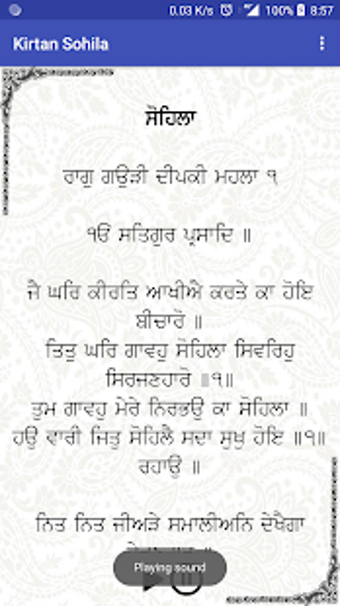 0.03 K/s 100% 8:57
Kirtan Sohila
ਸੋਹਿਲਾ
ਰਾਗੁ ਗਉੜੀ ਦੀਪਕੀ ਮਹਲਾ ੧
ੴ ਸਤਿਗੁਰ ਪ੍ਰਸਾਦਿ ॥
ਜੈ ਘਰਿ ਕੀਰਤਿ ਆਖੀਐ ਕਰਤੇ ਕਾ ਹੋਇ
ਬੀਚਾਰੋ ॥
ਤਿਤੁ ਘਰਿ ਗਾਵਹੁ ਸੋਹਿਲਾ ਸਿਵਰਿਹੁ
ਸਿਰਜਣਹਾਰੋ ॥੧॥
ਤੁਮ ਗਾਵਹੁ ਮੇਰੇ ਨਿਰਭਉ ਕਾ ਸੋਹਿਲਾ ॥
ਹਉ ਵਾਰੀ ਜਿਤੁ ਸੋਹਿਲੈ ਸਦਾ ਸੁਖੁ ਹੋਇ ॥੧॥
ਰਹਾਉ ॥
ਨਿਤ ਨਿਤ ਜੀਅੜੇ ਸਮਾਲੀਅਨਿ ਦੇਖੈਗਾ
Playing sound